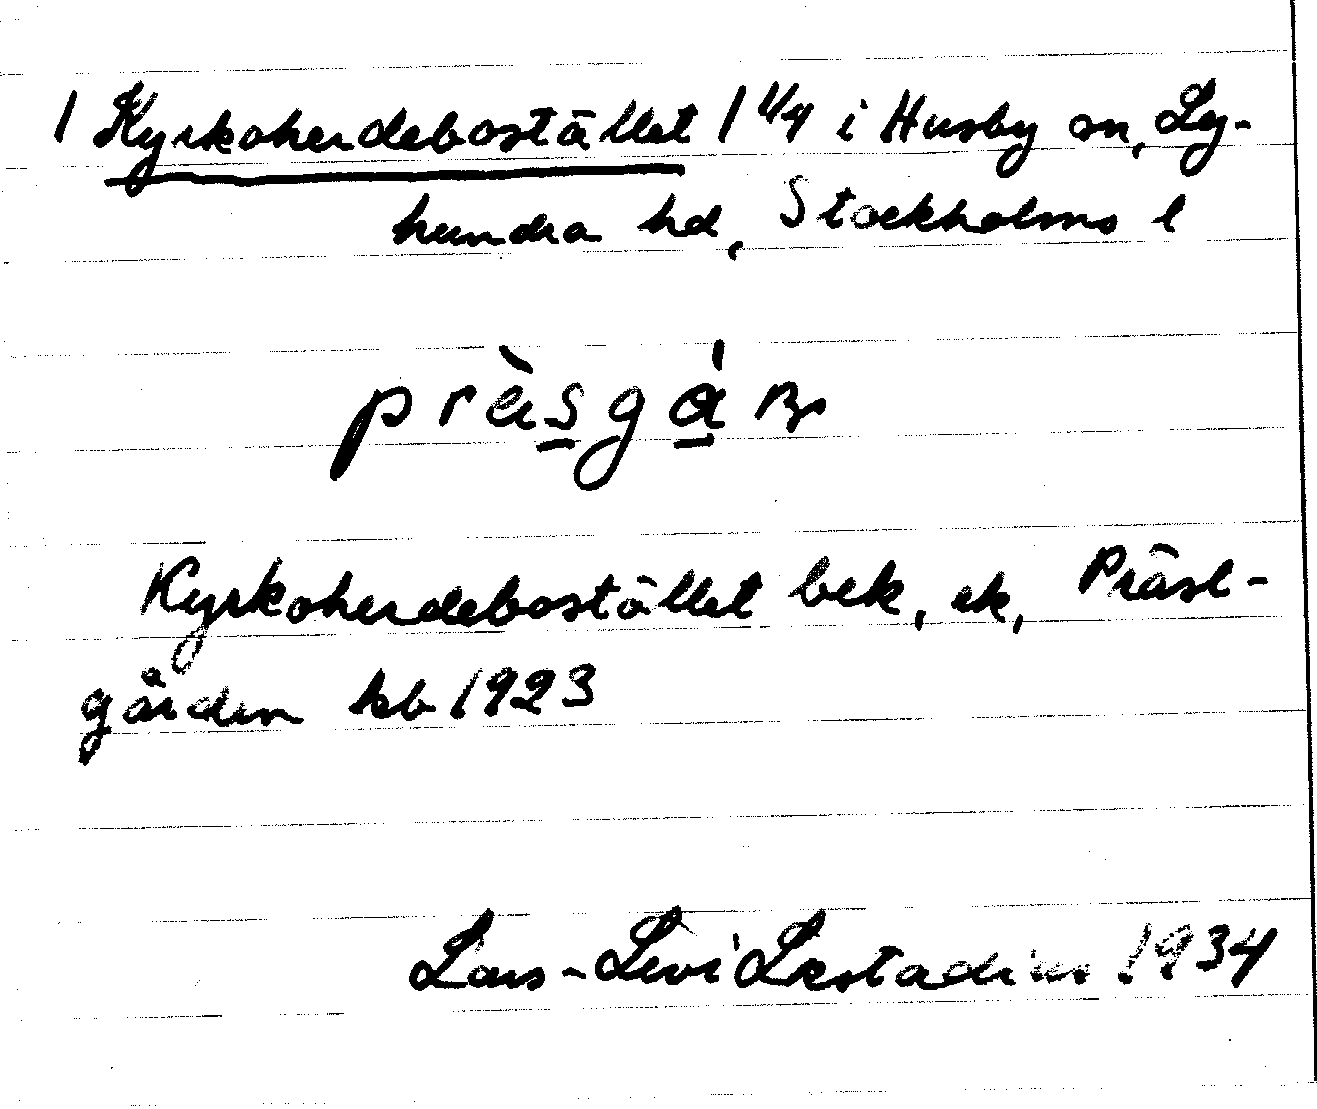 1 Kyrkoherdebostället 1 1/4 i Husby sn, Ly-
hundra hd, Stockholms l
prä̀s̲gá̲ɳ
Kyrkoherdebostället bek, ek, Präst-
gården kb 1923
Lars-Levi Læstadius 1934